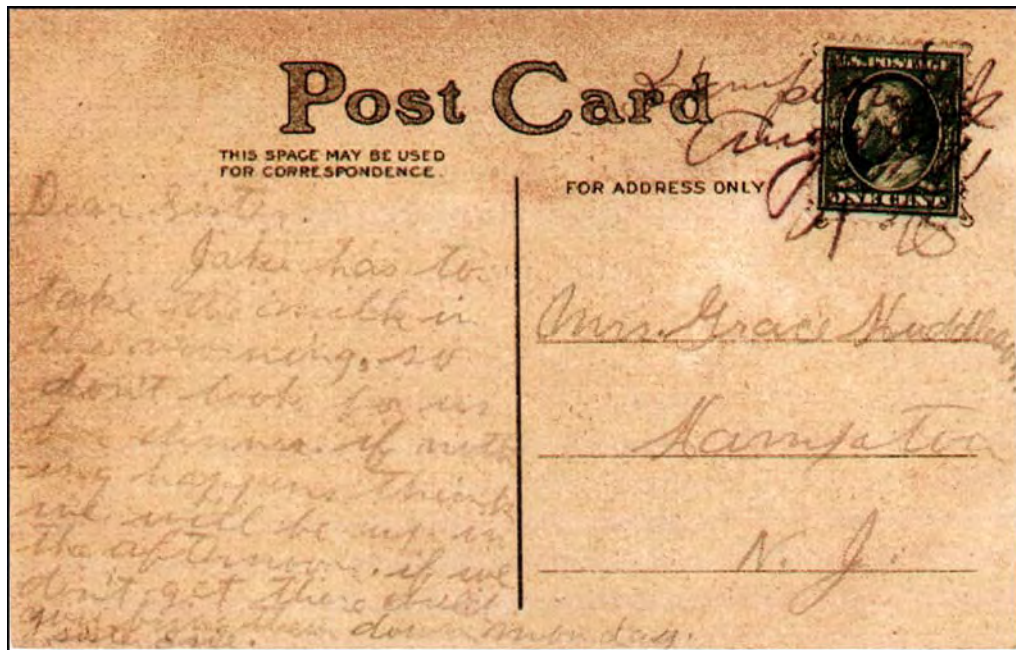 Post Card
THIS SPACE MAY BE USED
FOR CORRESPONDENCE.
FOR ADDRESS ONLY
U.S. POSTAGE
ONE CENT
Dear Sister.
Jake has to
take the milk in
the morning, so
don't look for us
for dinner. if noth
ing happens think
we will be up in
the afternoon. if we
don't get there
down monday.
Mrs. Grace Huddleson
Hampton
N. J.